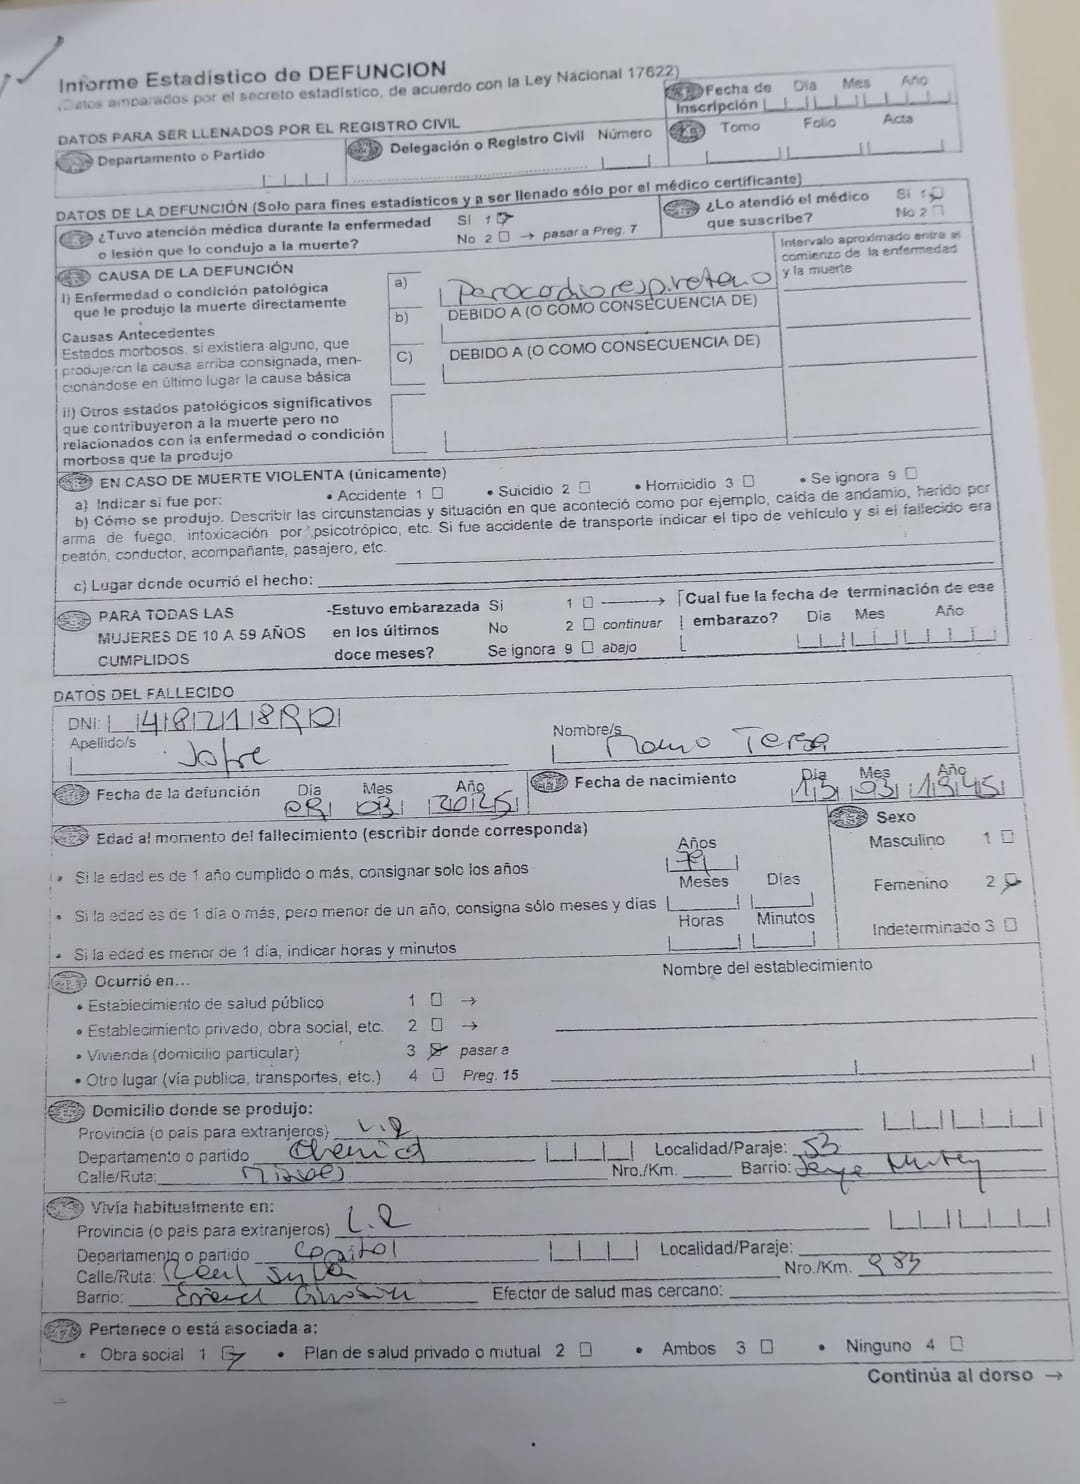 Informe Estadístico de DEFUNCION
(Datos amparados por el secreto estadístico, de acuerdo con la Ley Nacional 17622)
Fecha de Inscripción Día Mes Año
DATOS PARA SER LLENADOS POR EL REGISTRO CIVIL
Departamento o Partido
Delegación o Registro Civil Número
Tomo Folio Acta
DATOS DE LA DEFUNCIÓN (Solo para fines estadísticos y a ser llenado sólo por el médico certificante)
¿Tuvo atención médica durante la enfermedad
o lesión que lo condujo a la muerte?
SI 1
No 2 → pasar a Preg. 7
¿Lo atendió el médico
que suscribe?
Si 1
No 2
CAUSA DE LA DEFUNCIÓN
Intervalo aproximado entra el
comienzo de la enfermedad
y la muerte
I) Enfermedad o condición patológica
que le produjo la muerte directamente
a) Parocadiorespiratorio
DEBIDO A (O COMO CONSECUENCIA DE)
b)
Causas Antecedentes
Estados morbosos, si existiera alguno, que
produjeron la causa arriba consignada, men-
cionándose en último lugar la causa básica
C) DEBIDO A (O COMO CONSECUENCIA DE)
ii) Otros estados patológicos significativos
que contribuyeron a la muerte pero no
relacionados con la enfermedad o condición
morbosa que la produjo
EN CASO DE MUERTE VIOLENTA (únicamente)
a) Indicar si fue por: • Accidente 1 • Suicidio 2 • Homicidio 3 • Se ignora 9
b) Cómo se produjo. Describir las circunstancias y situación en que aconteció como por ejemplo, caída de andamio, herido por
arma de fuego, intoxicación por psicotrópico, etc. Si fue accidente de transporte indicar el tipo de vehículo y si el fallecido era
peatón, conductor, acompañante, pasajero, etc.
c) Lugar donde ocurrió el hecho:
PARA TODAS LAS
MUJERES DE 10 A 59 AÑOS
CUMPLIDOS
-Estuvo embarazada
en los últimos
doce meses?
Si 1
No 2 continuar
Se ignora 9 abajo
Cual fue la fecha de terminación de ese
embarazo? Día Mes Año
DATOS DEL FALLECIDO
DNI:
Apellido/s Jofre
Nombre/s
Fecha de la defunción Día Mes Año
03 2025
Fecha de nacimiento Día Mes Año
13 03 1945
Edad al momento del fallecimiento (escribir donde corresponda)
Sexo
Masculino 1
Femenino 2
Indeterminado 3
• Si la edad es de 1 año cumplido o más, consignar solo los años
Años
79
• Si la edad es de 1 día o más, pero menor de un año, consigna sólo meses y días
Meses Días
• Si la edad es menor de 1 día, indicar horas y minutos
Horas Minutos
Ocurrió en...
Nombre del establecimiento
• Establecimiento de salud público 1 →
• Establecimiento privado, obra social, etc. 2 →
• Vivienda (domicilio particular) 3 pasar a
• Otro lugar (vía publica, transportes, etc.) 4 Preg. 15
Domicilio donde se produjo:
Provincia (o país para extranjeros)
Departamento o partido
Localidad/Paraje:
Calle/Ruta:
Nro./Km.
Barrio:
Vivía habitualmente en:
Provincia (o país para extranjeros) L.R
Departamento o partido Capital
Localidad/Paraje:
Calle/Ruta:
Nro./Km. 983
Barrio:
Efector de salud mas cercano:
Pertenece o está asociada a:
• Obra social 1 • Plan de salud privado o mutual 2 • Ambos 3 • Ninguno 4
Continúa al dorso →